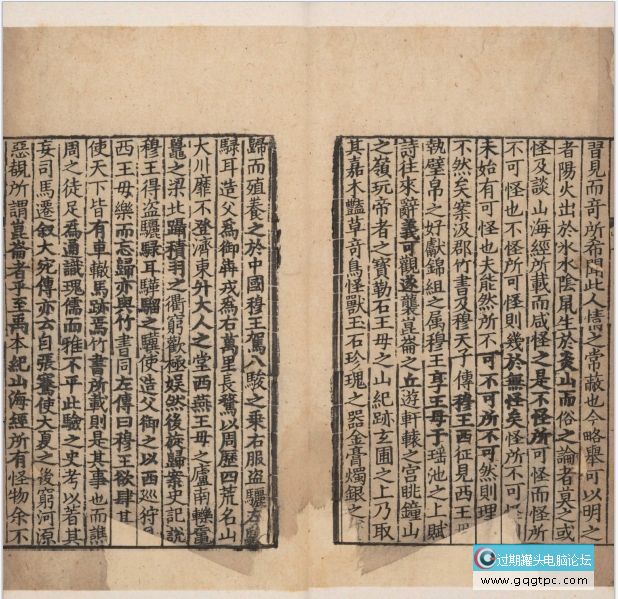 習見而奇所希聞此人情之常蔽也今略舉可以明之
者陽火出於冰水陰鼠生於炎山而俗之論者莫之或
怪及談山海經所載而咸怪之是不怪所可怪而怪所
不可怪也不怪所可怪則幾於無怪矣怪所不可怪
未始有可怪也夫能然所不可不可所不可然則理
不然矣案汲郡竹書及穆天子傳穆王西征見西王
執璧帛之好獻錦組之属穆王享王母于瑶池之上賦
詩往來辭義可觀遂襲崑崙之丘遊軒轅之宮眺鐘山
之嶺玩帝者之寶勒石王母之山紀跡玄圃之上乃取
其嘉木豔草奇鳥怪獸玉石珍瑰之器金膏燭銀之
歸而殖養之於中國穆王駕八駿之乘右服盜驪左驂
騄耳造父為御犇戎為右萬里長騖以周歷四荒名山
大川靡不登濟東升大人之堂西燕王母之廬南轢黿
鼉之梁北躡積羽之衢窮歡極娛然後旋歸案史記說
穆王得盜驪騄耳驊騮之驥使造父御之以西巡狩
西王母樂而忘歸亦與竹書同左傳曰穆王欲肆其
使天下皆有車轍馬跡焉竹書所載則是其事也而譙
周之徒足為通識瑰儒而雅不平此驗之史考以著其
妄司馬遷叙大宛傳亦云自張騫使大夏之後窮河源
惡覩所謂崑崙者乎至禹本紀山海經所有怪物余不
过期罐头电脑论坛
www.gqgtpc.com